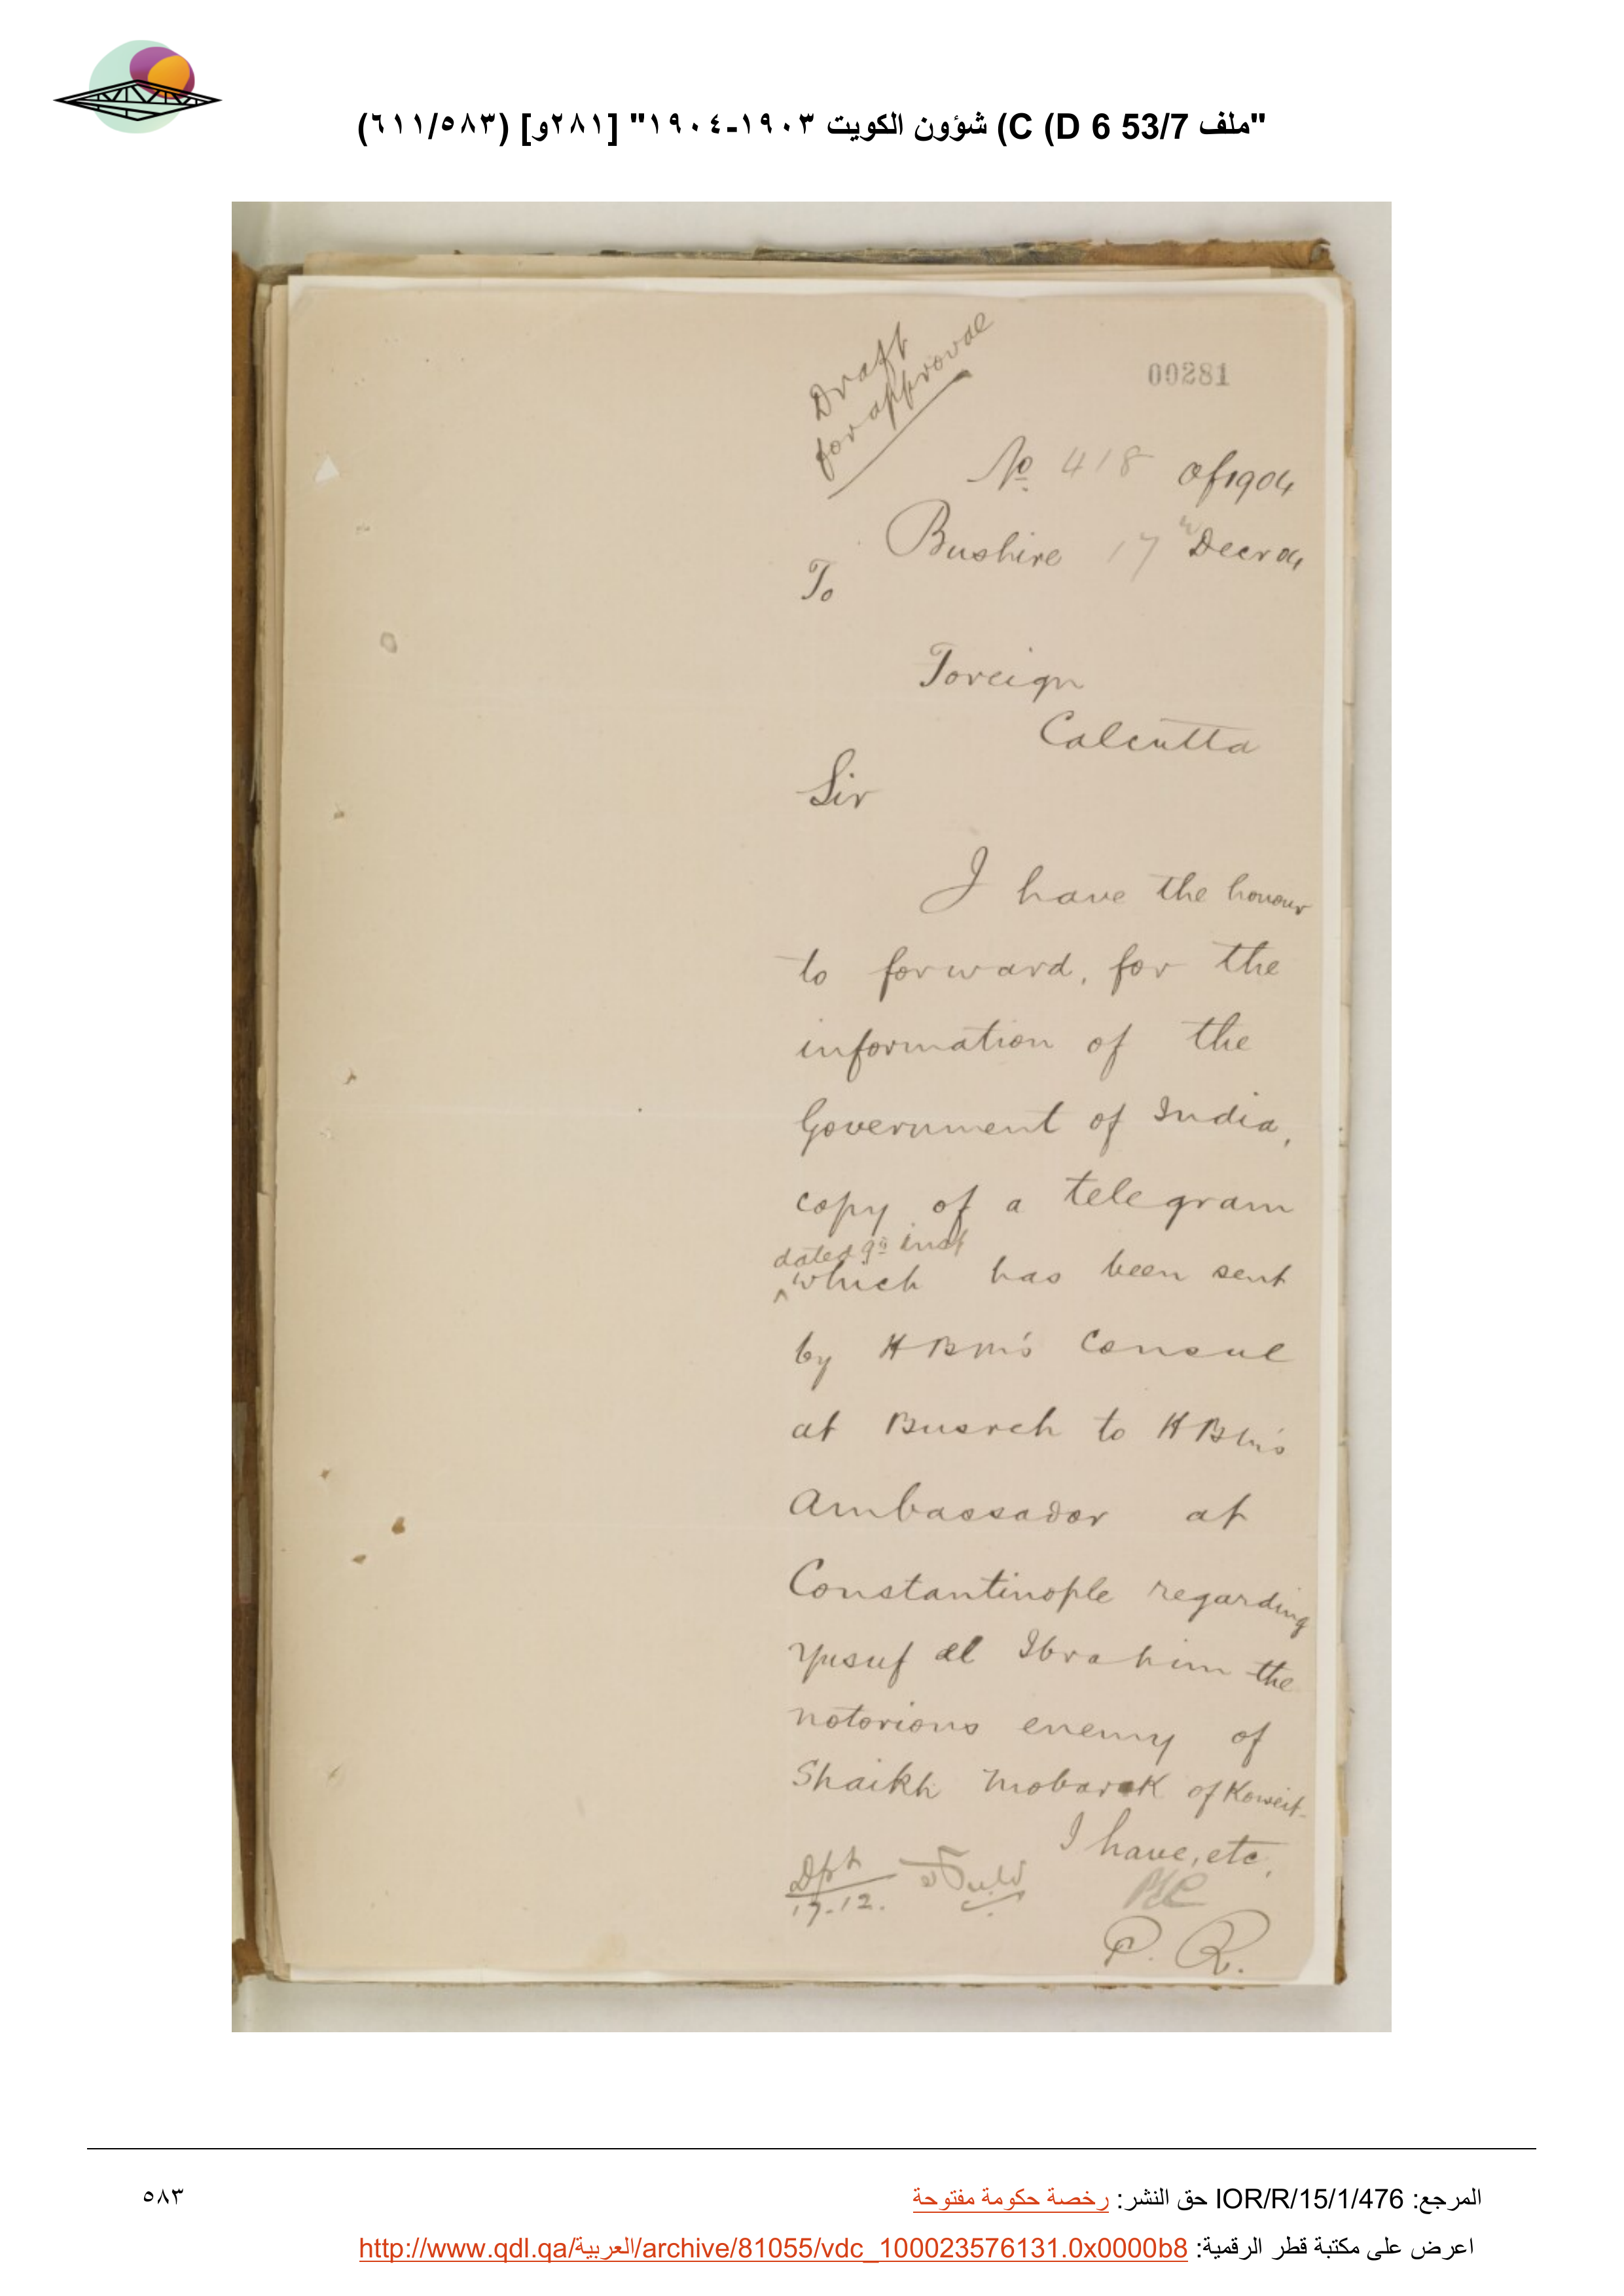 "ملف 53/7 C (D 6) شؤون الكويت ١٩٠٣-١٩٠٤" [٢٨١و] (٦١١/٥٨٣)
Draft
for approval
00281
No 418 of 1904
Bushire 17 Decr 04
To
Foreign
Calcutta
Sir
I have the honour
to forward, for the
information of the
Government of India,
copy of a telegram
dated 9th inst
which has been sent
by HBM's Consul
at Busreh to HBM's
Ambassador at
Constantinople regarding
Yusuf al Ibrahim the
notorious enemy of
Shaikh Mobarak of Koweit.
I have, etc.
Dpt
17.12.
P. R.
المرجع: IOR/R/15/1/476 حق النشر: رخصة حكومة مفتوحة
٥٨٣
اعرض على مكتبة قطر الرقمية: http://www.qdl.qa/العربية/archive/81055/vdc_100023576131.0x0000b8